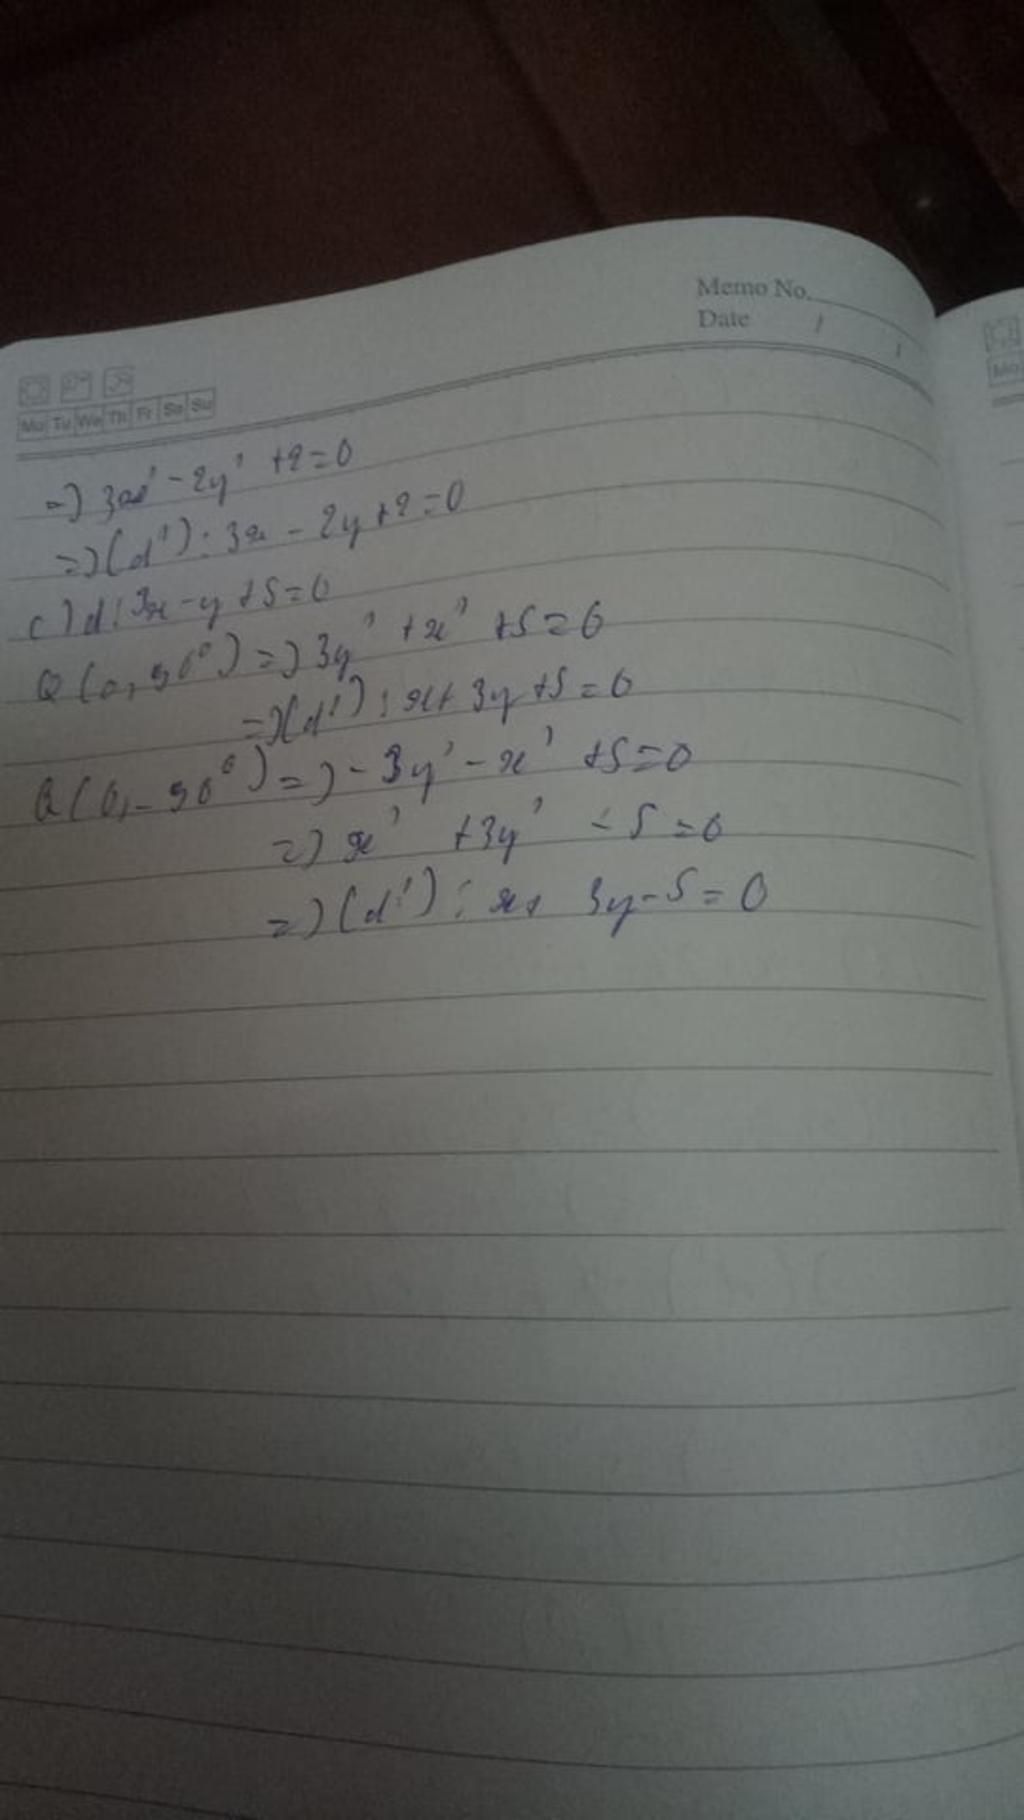 Memo No.
Date / /
Mo Tu We Th Fr Sa Su
=) 3x' - 2y' + 2 = 0
=) (d'): 3x - 2y + 2 = 0
c) d: 3x - y + 5 = 0
Q(0, 90°) =) 3y' + x' + 5 = 0
=) (d'): x + 3y + 5 = 0
Q(0, -90°) =) - 3y' - x' + 5 = 0
=) x' + 3y' - 5 = 0
=) (d'): x + 3y - 5 = 0
Mo